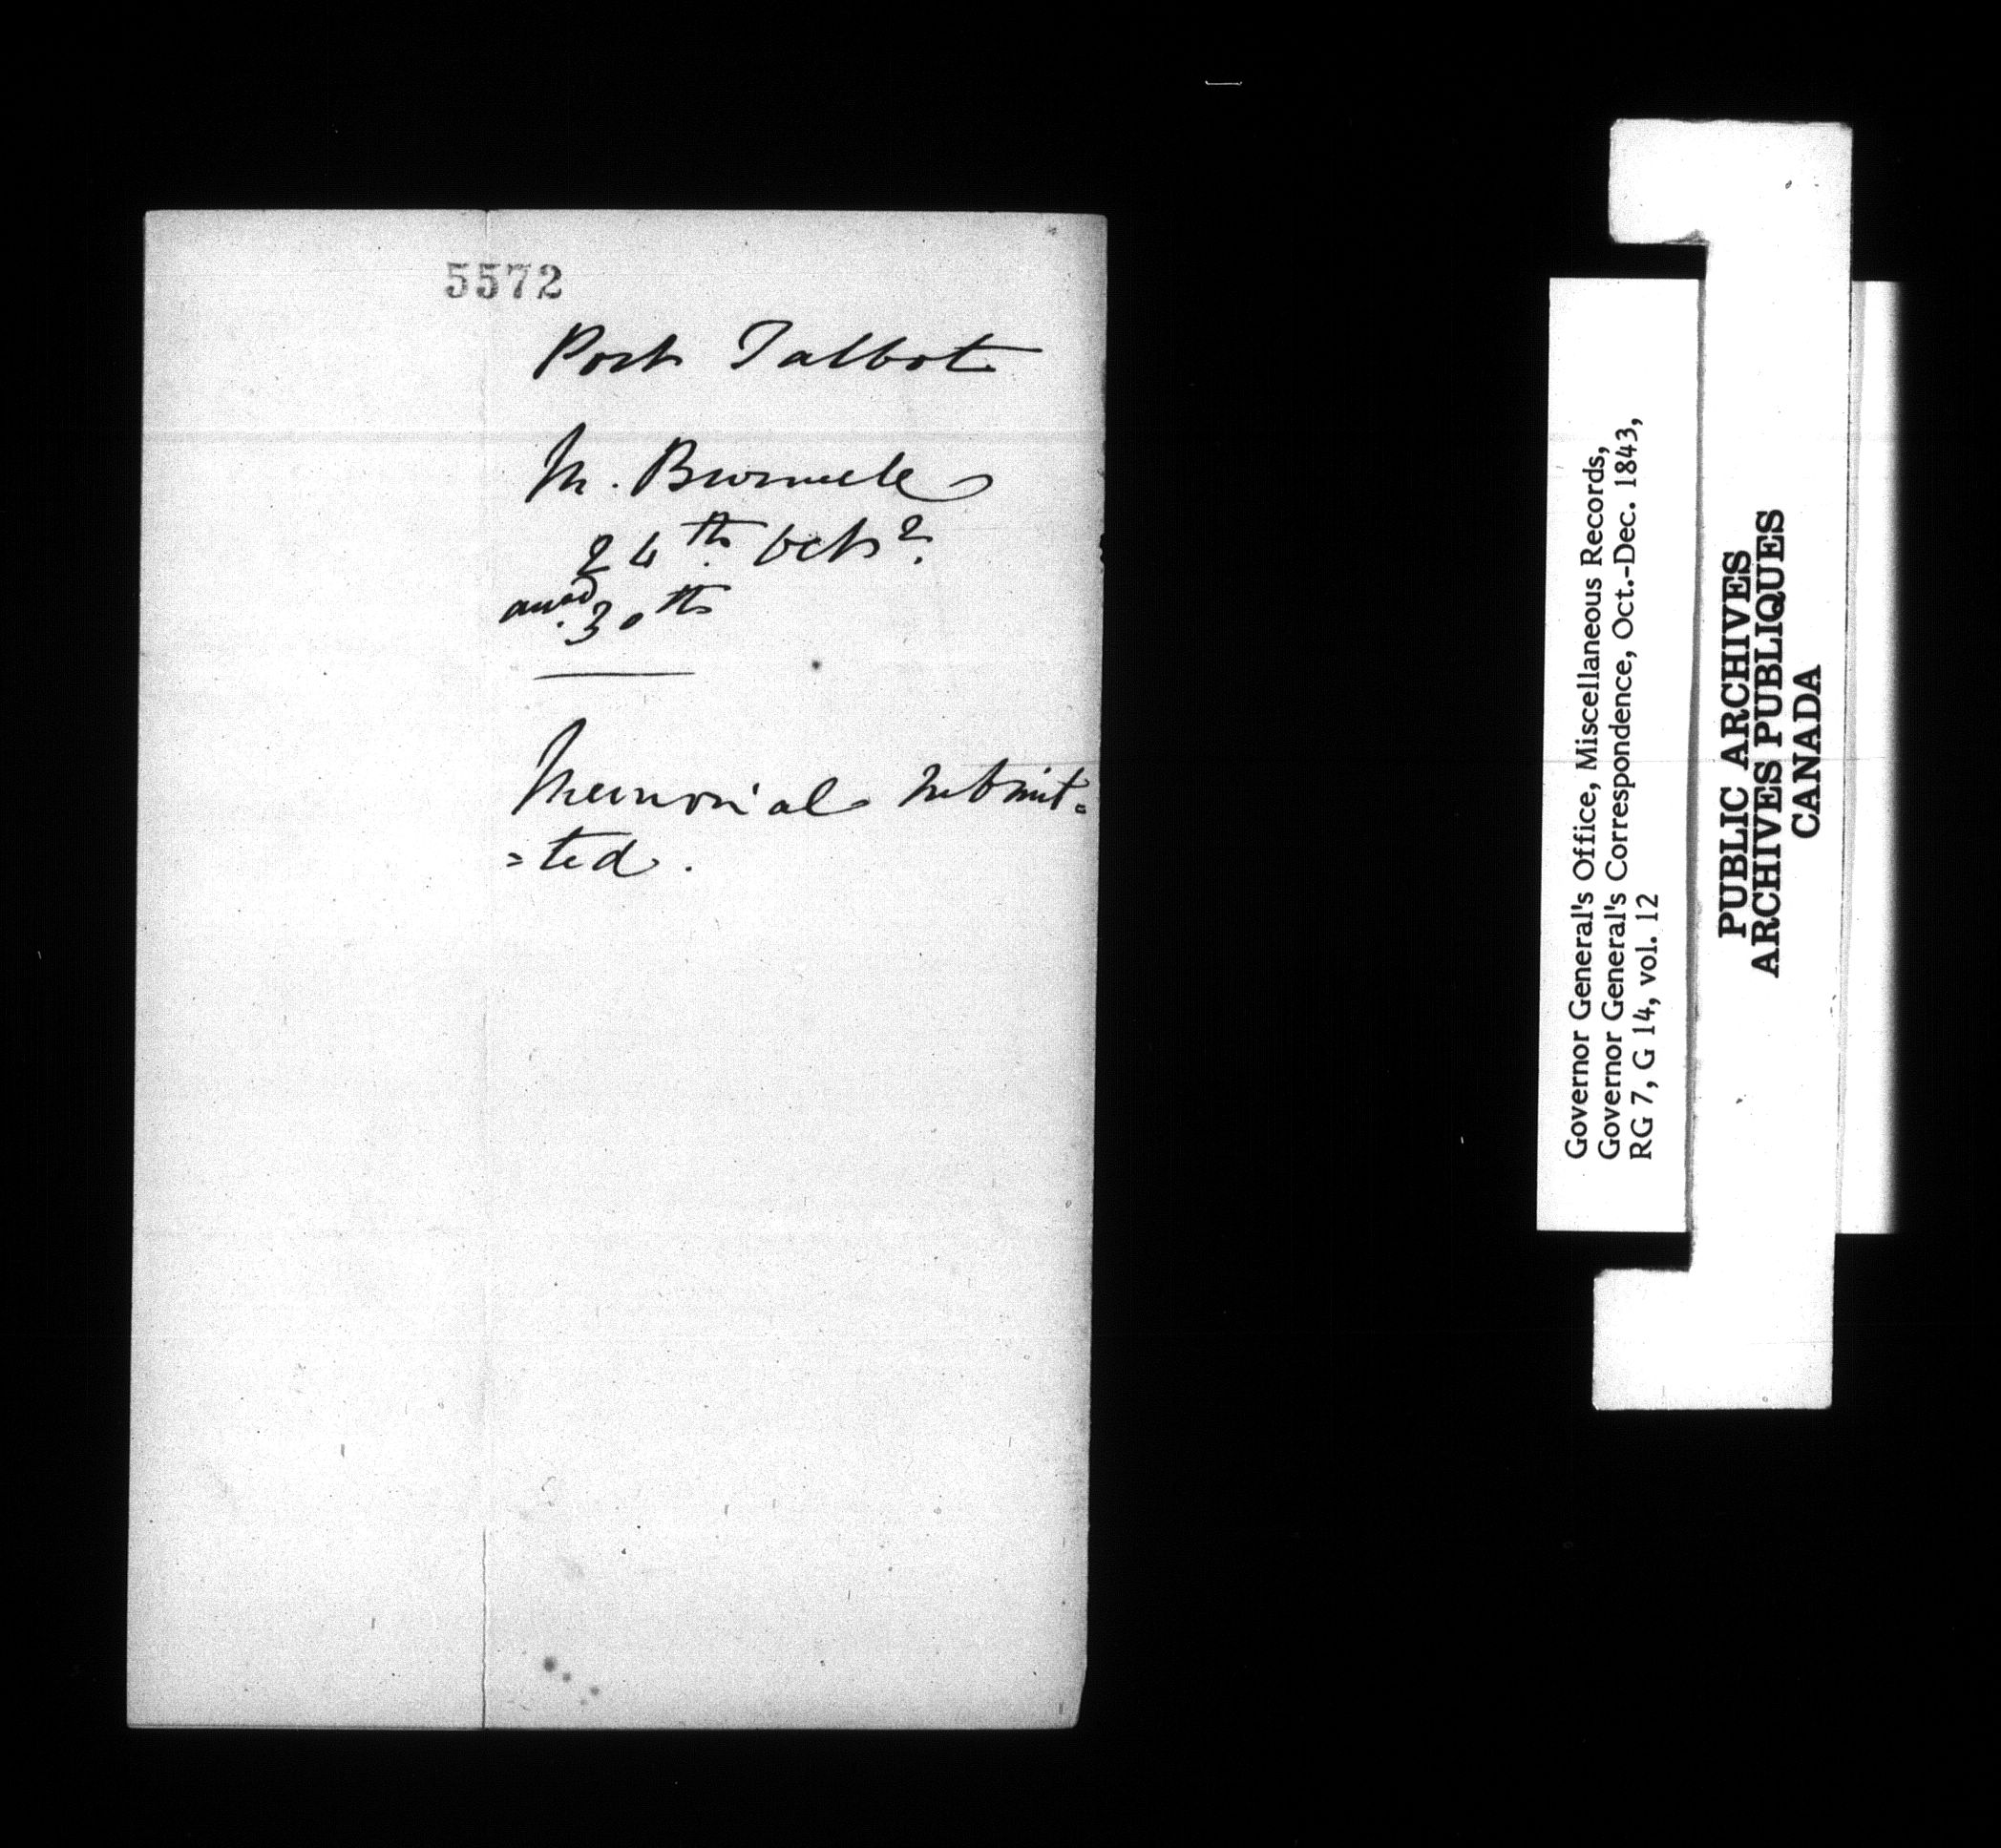 5572
Port Talbot
M. Burwell
24th Octr.
answd. 30th
Memorial submit=
=ted.
Governor General's Office, Miscellaneous Records,
Governor General's Correspondence, Oct.-Dec. 1843,
RG 7, G 14, vol. 12
PUBLIC ARCHIVES
ARCHIVES PUBLIQUES
CANADA